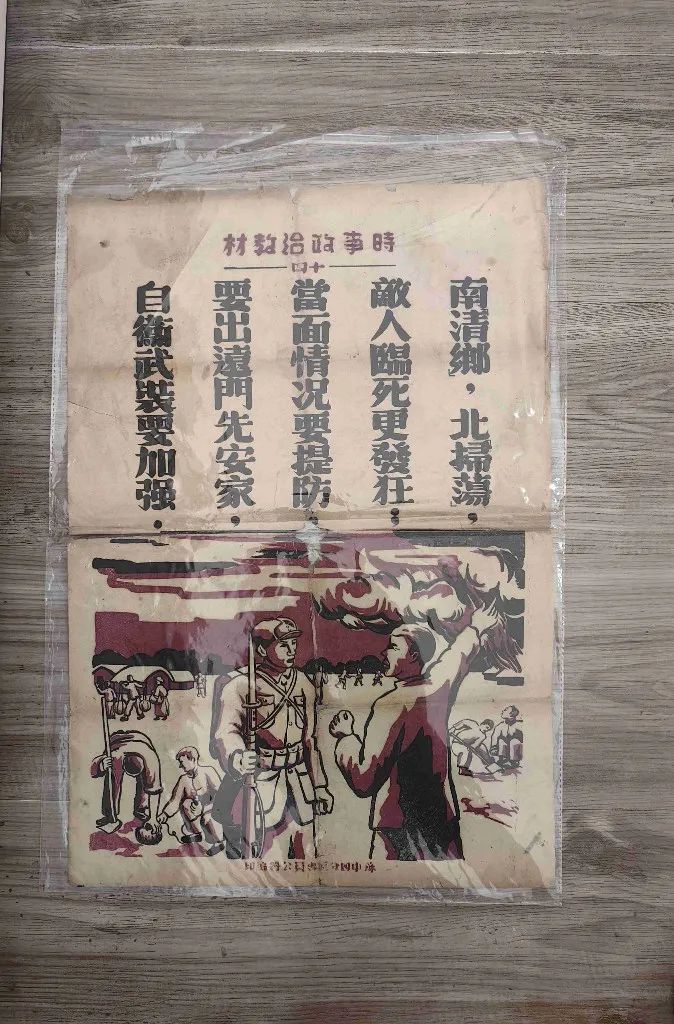 時事政治教材
十四
「南清鄉」，北「掃蕩」，
敵人臨死更發狂；
當面情况要提防，
要出遠門先安家，
自衛武裝要加强．